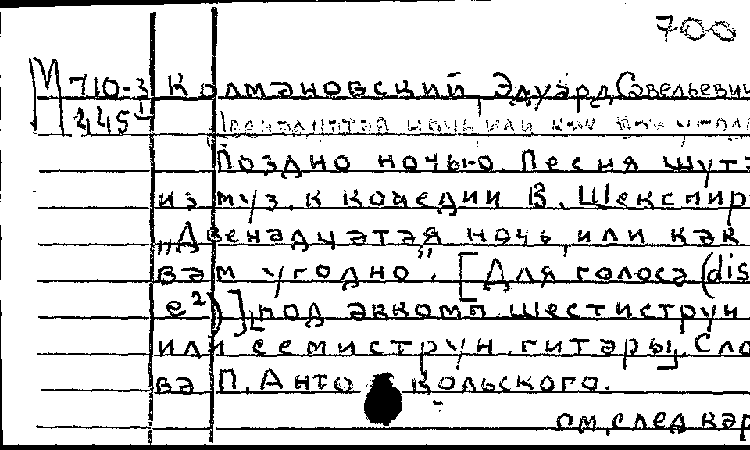 700
М 710-3 Колмановский, Эдуард Савельевич
445
Двенадцатая ночь или как вам угодно
Поздно ночью. Песня шута
из муз. к комедии В. Шекспир
„Двенадцатая ночь, или как
вам угодно". [Для голоса (dis
e²)], [под аккомп. шестиструн
или семиструн. гитары]. Сло
ва П. Антокольского.
см. след кар